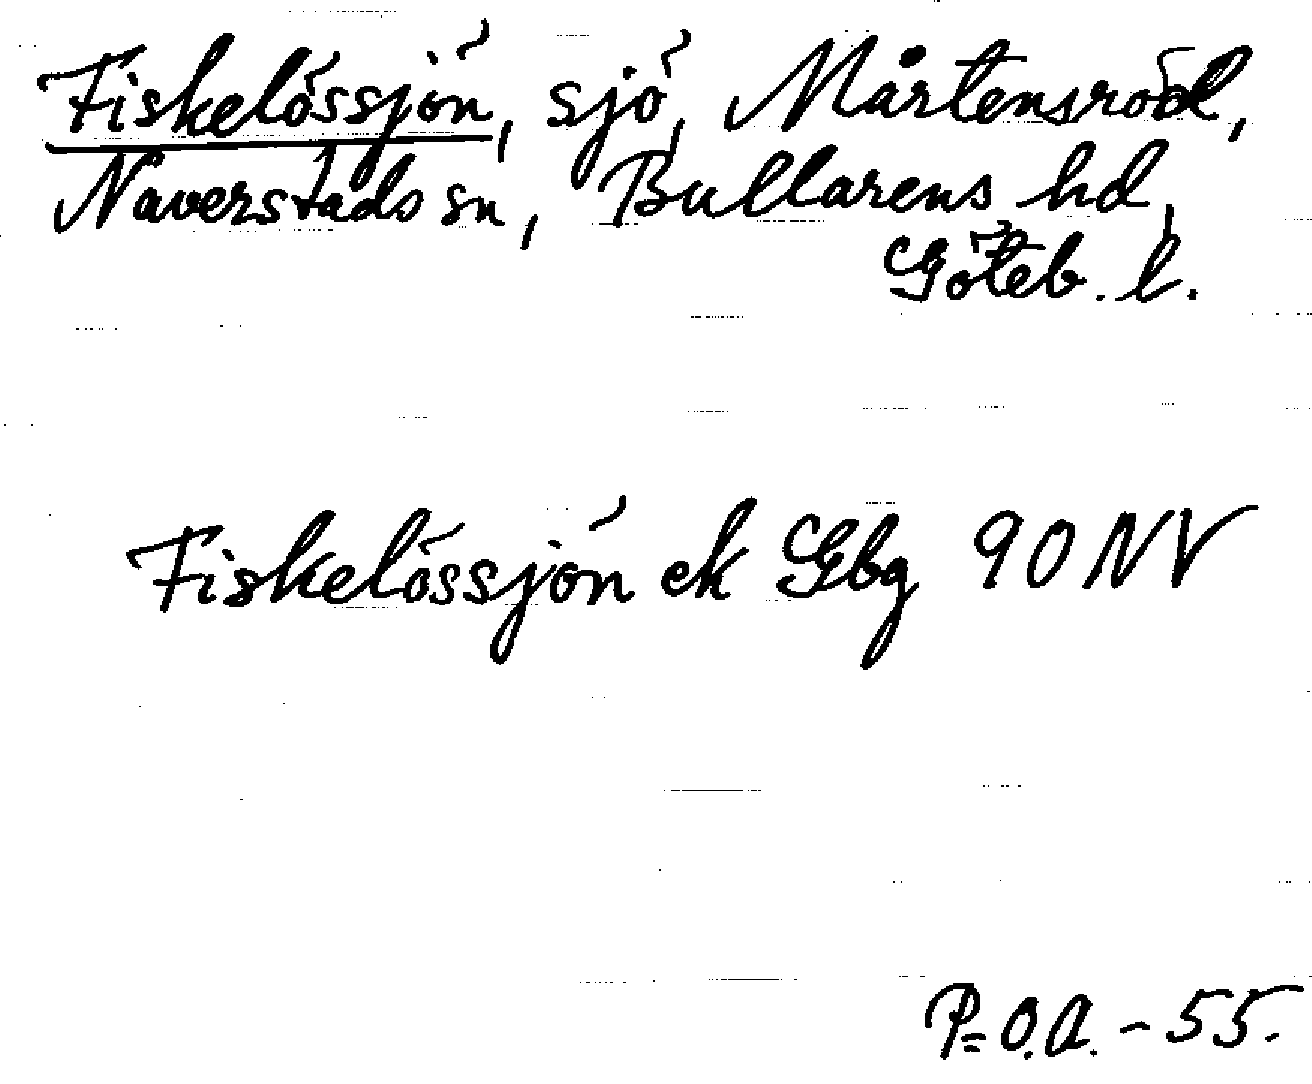 Fiskelössjön, sjö, Mårtensröd,
Naverstads sn, Bullarens hd,
Göteb. l.
Fiskelössjön ek Gbg 90 NV
P=O.A. - 55.